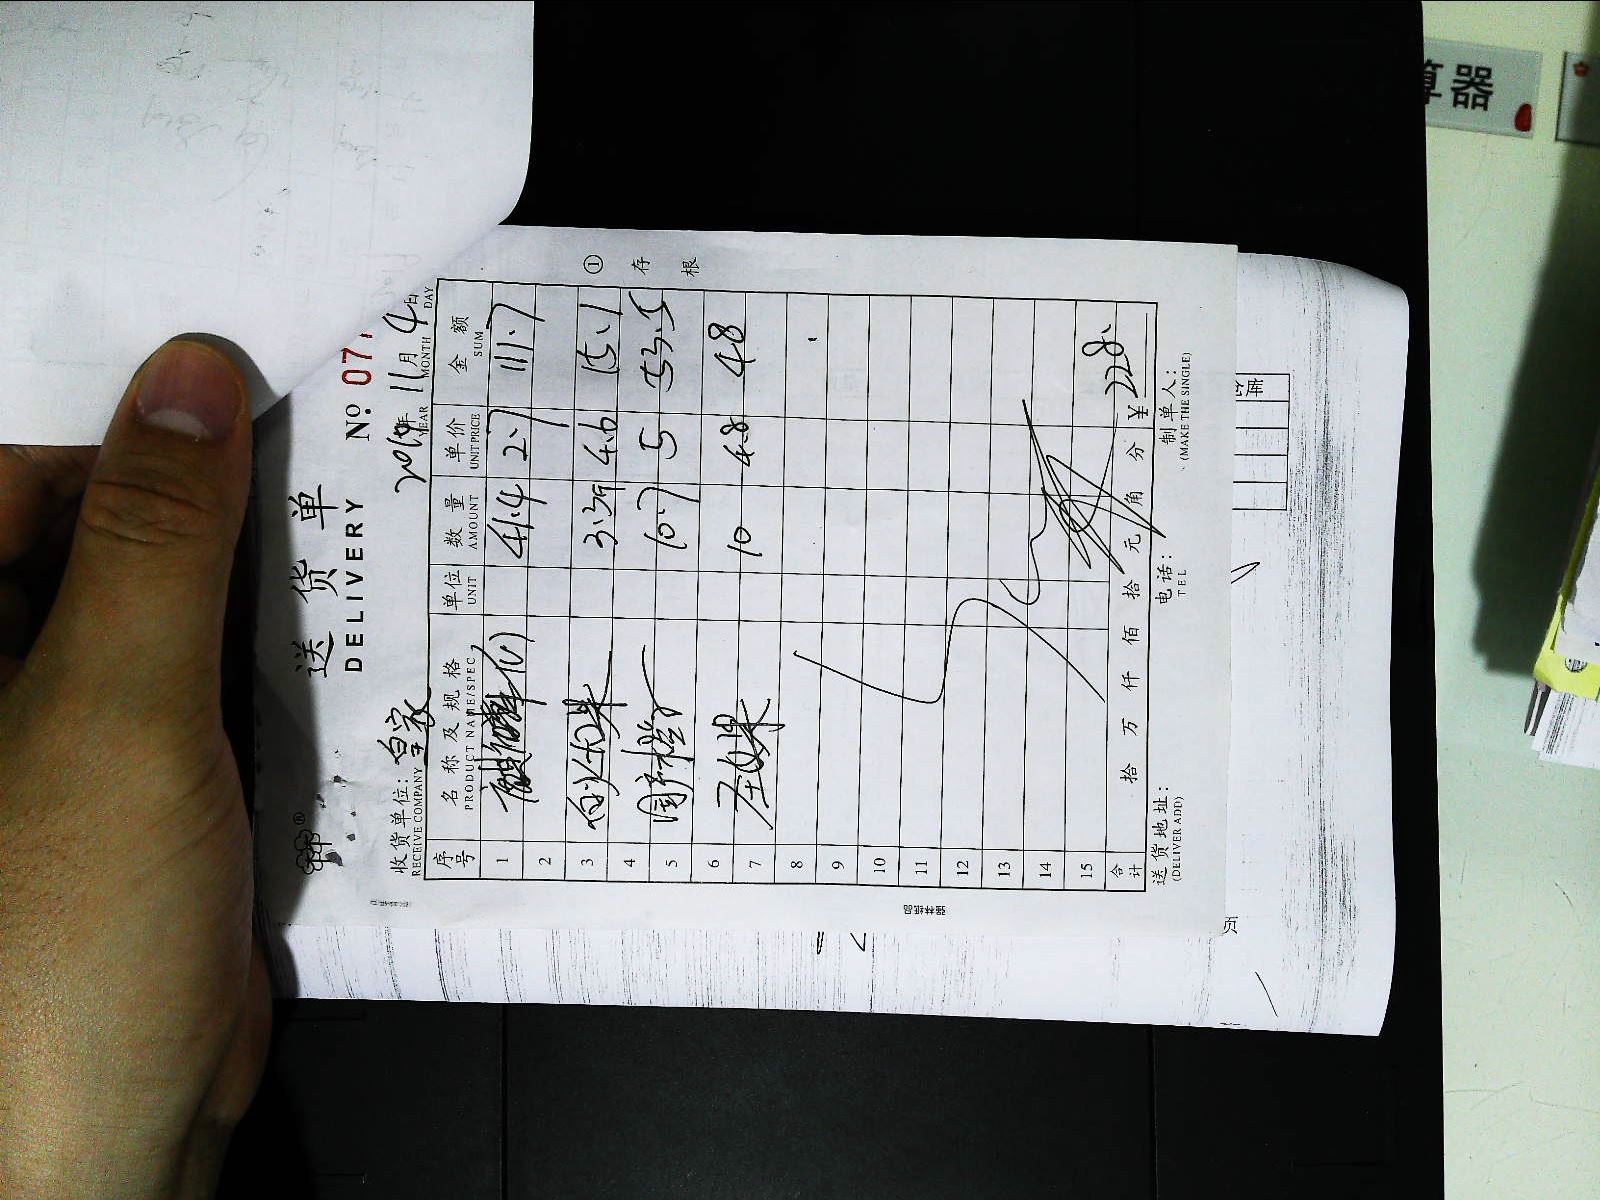 送货单
DELIVERY
№ 07
收货单位：皇家 2019年 11月 4日
RECEIVE COMPANY YEAR MONTH DAY
序号 名称及规格 单位 数量 单价 金额
PRODUCT NAME/SPEC UNIT AMOUNT UNIT PRICE SUM
1 41.4 2.7 111.7
2
3 3.3斤 4.6 15.1
4
5 10.7 5 53.5
6
7 10 4.8 48
8
9
10
11
12
13
14
15
合计 拾 万 仟 佰 拾 元 角 分 ¥ 228.
送货地址： 电话： 制单人：
(DELIVER ADD) TEL (MAKE THE SINGLE)
① 存根
强林纸品
算器
页